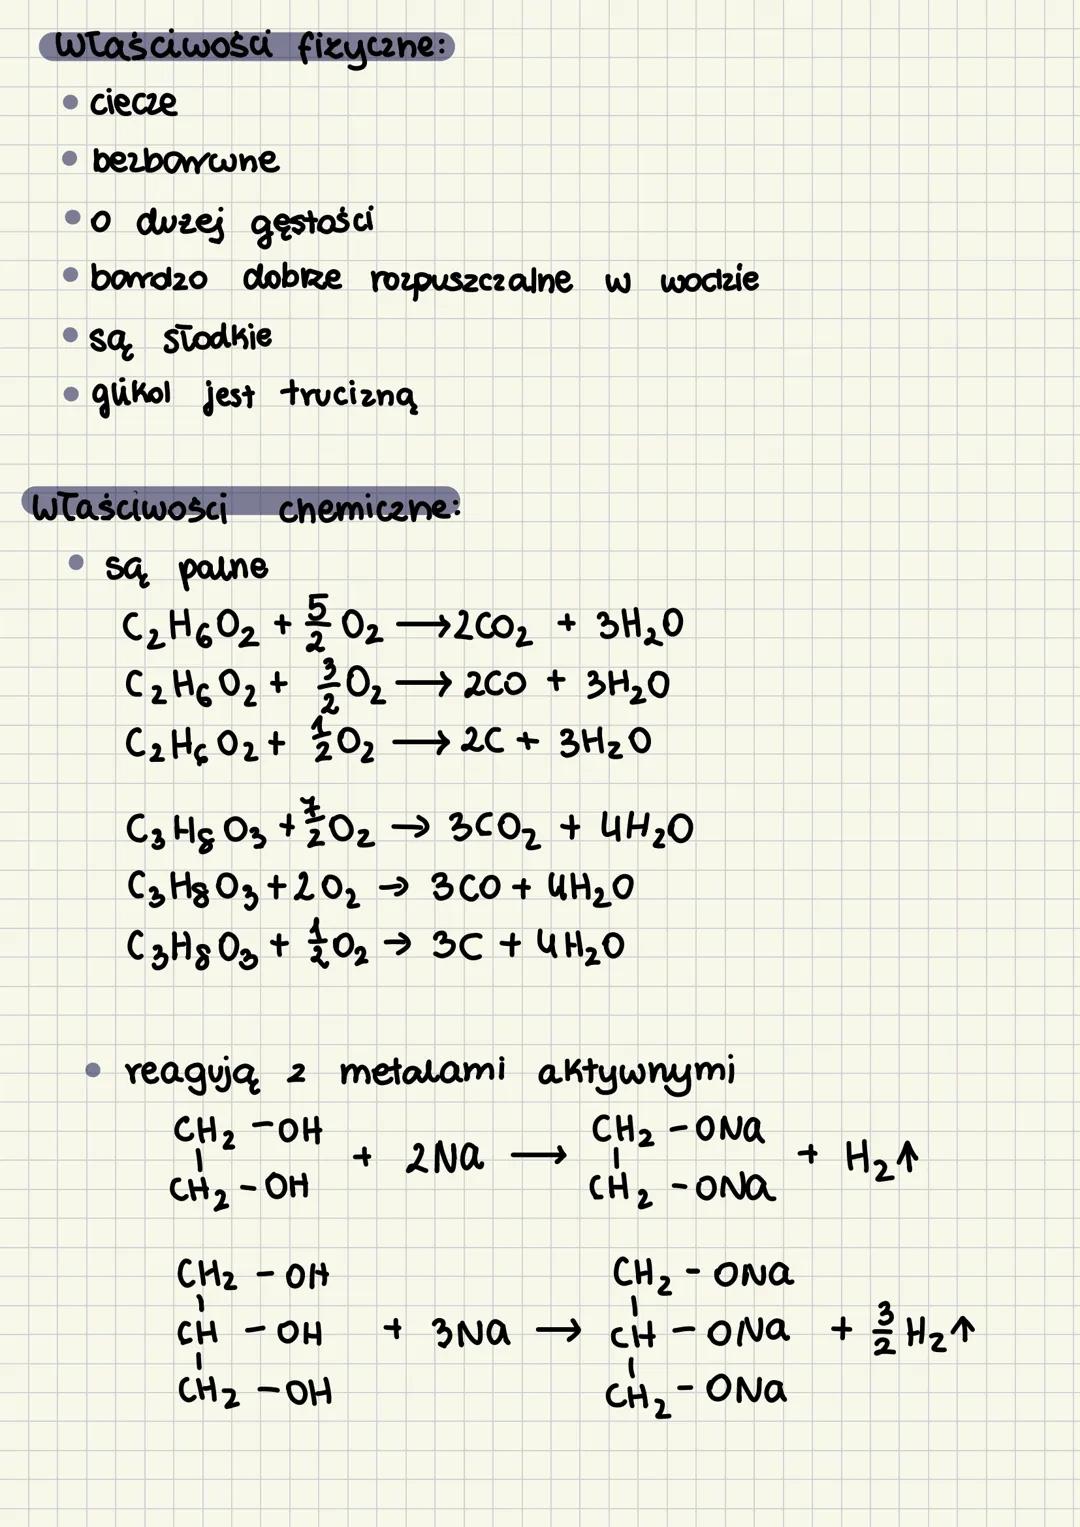 Właściwości fizyczne:
• ciecze
• bezbarwne
• o dużej gęstości
• bardzo dobrze rozpuszczalne w wodzie
• są słodkie
• glikol jest trucizną
Właściwości chemiczne:
• są palne
C₂H₆O₂ + 5/2 O₂ → 2CO₂ + 3H₂O
C₂H₆O₂ + 3/2 O₂ → 2CO + 3H₂O
C₂H₆O₂ + 1/2 O₂ → 2C + 3H₂O
C₃H₈O₃ + 7/2 O₂ → 3CO₂ + 4H₂O
C₃H₈O₃ + 2O₂ → 3CO + 4H₂O
C₃H₈O₃ + 1/2 O₂ → 3C + 4H₂O
• reagują z metalami aktywnymi
CH₂-OH CH₂-ONa
| + 2Na → | + H₂↑
CH₂-OH CH₂-ONa
CH₂-OH CH₂-ONa
| |
CH-OH + 3Na → CH-ONa + 3/2 H₂↑
| |
CH₂-OH CH₂-ONa